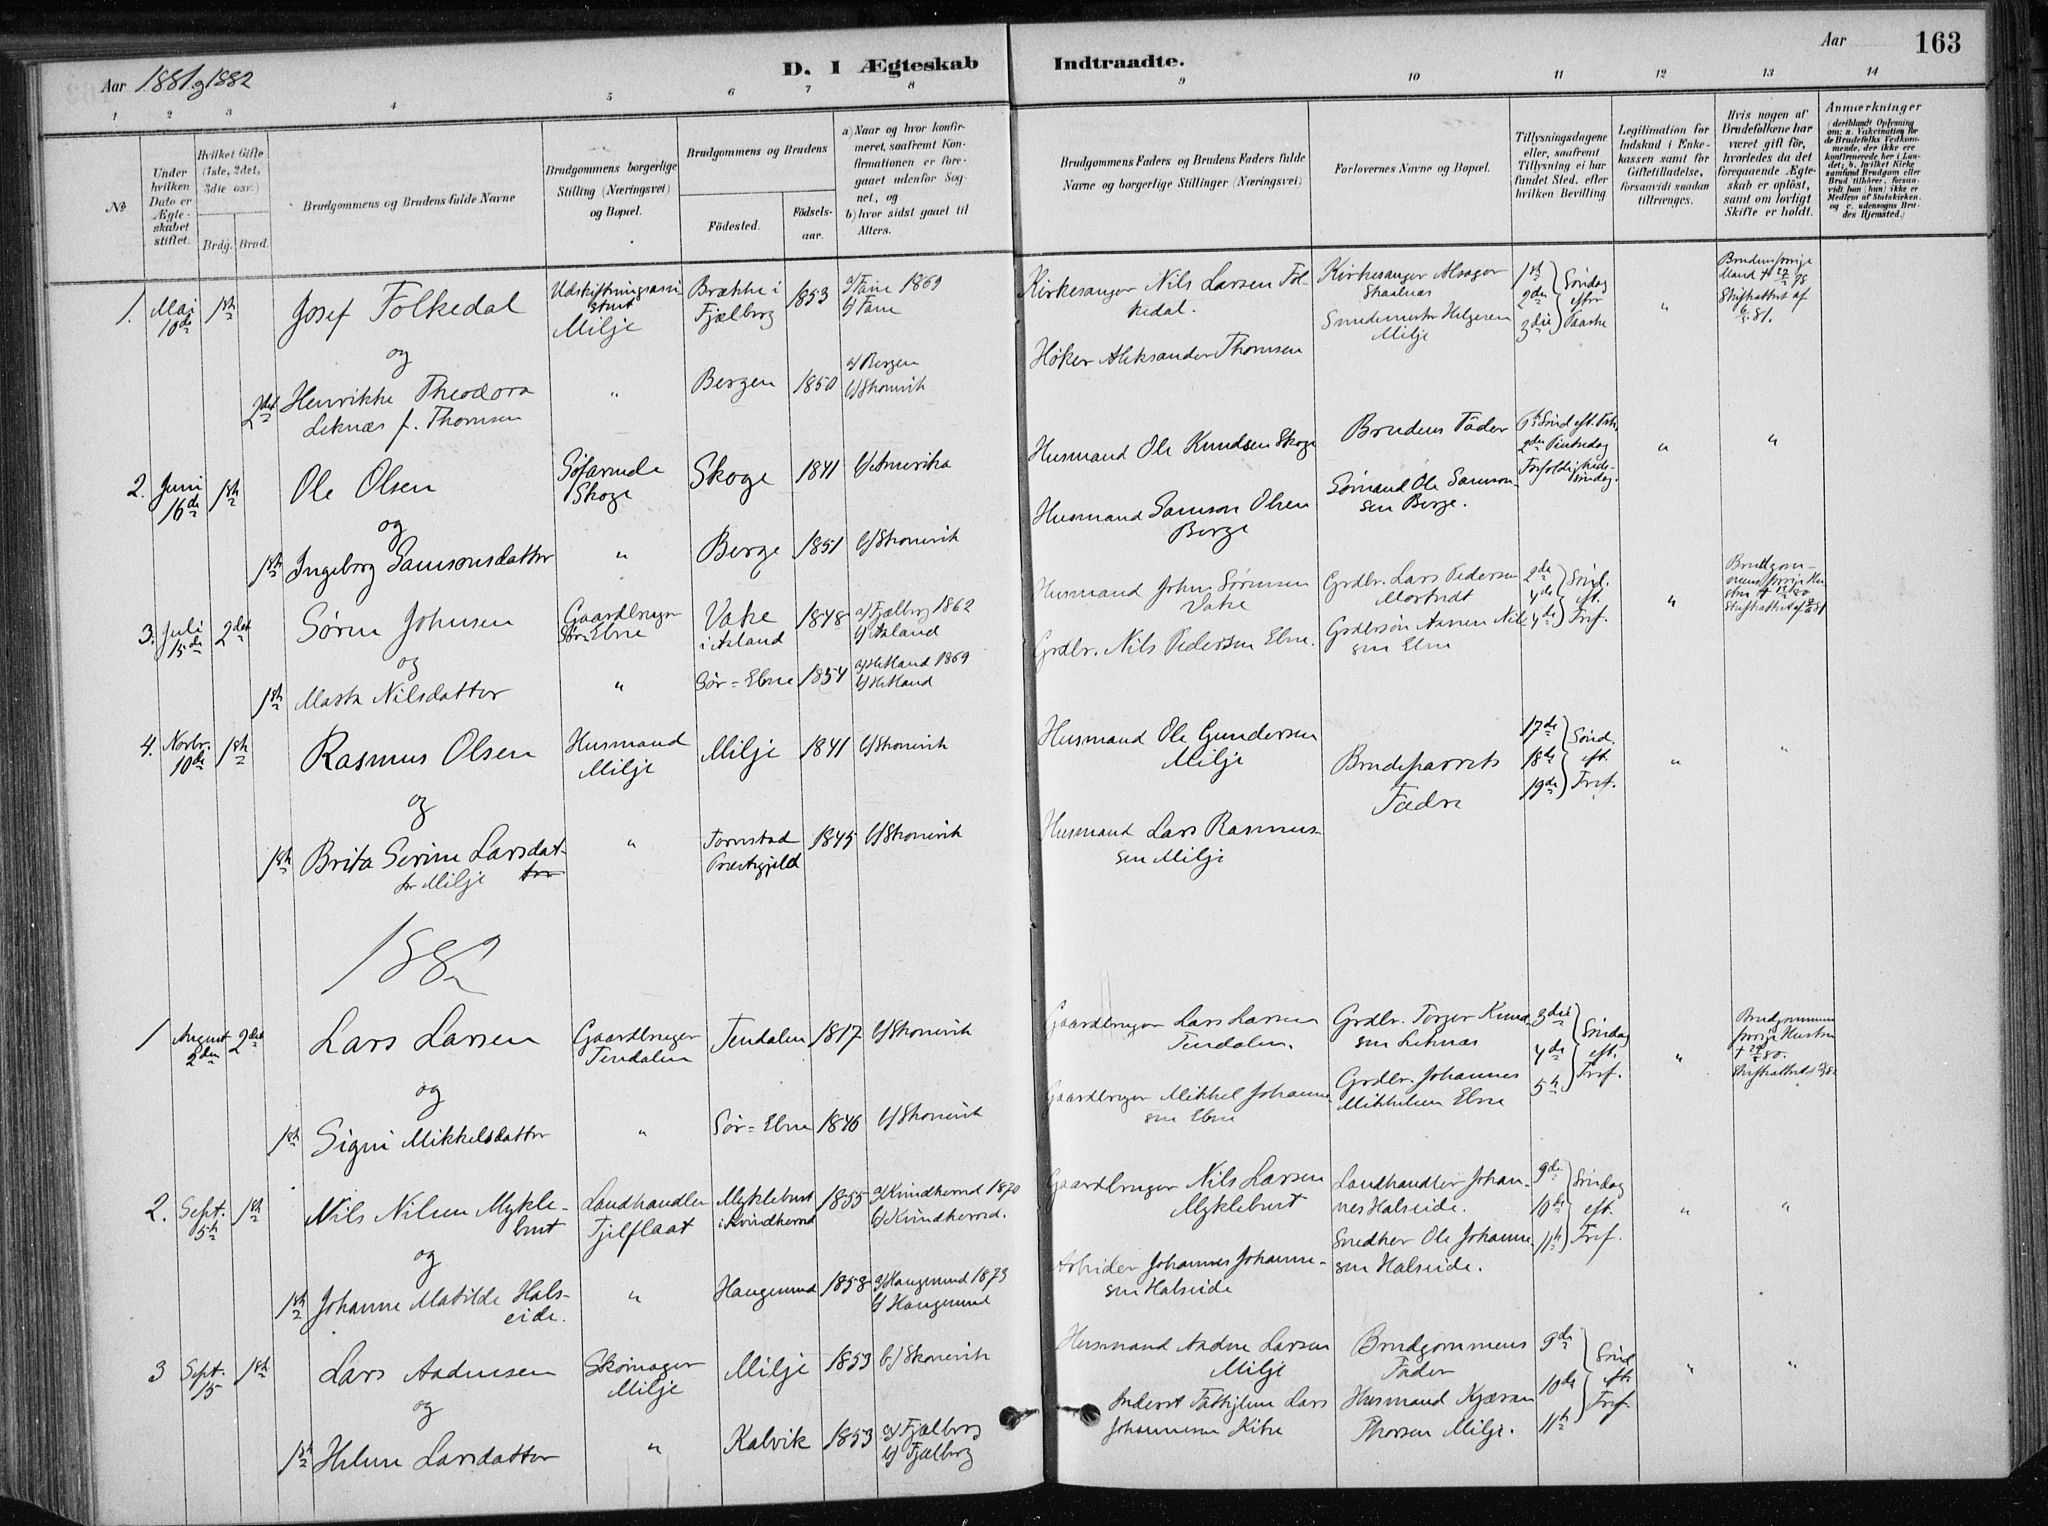 Aar 1881 og 1882
D. I Ægteskab Indtraadte.
Aar
163
1 2 3 4 5 6 7 8 9 10 11 12 13 14
No
Under hvilken Dato er Ægteskabet stiftet.
Hvilket Gifte (1ste, 2det, 3die osv.)
Brdg. Brud.
Brudgommens og Brudens fulde Navne
Brudgommens borgerlige Stilling (Næringsvei) og Bopæl.
Brudgommens og Brudens
Födested.
Födsels-aar.
a) Naar og hvor konfirmeret, saafremt Konfirmationen er foregaaet udenfor Sognet, og
b) hvor sidst gaaet til Alters.
Brudgommens Faders og Brudens Faders fulde Navne og borgerlige Stillinger (Næringsvei)
Forlovernes Navne og Bopæl.
Tillysningsdagene eller, saafremt Tillysning ei har fundet Sted, efter hvilken Bevilling
Legitimation for Indskud i Enkekassen samt for Giftetilladelse, forsaavidt saadan tiltrænges.
Hvis nogen af Brudefolkene har været gift för, hvorledes da det foregaaende Ægteskab er oplöst, samt om lovligt Skifte er holdt.
Anmærkninger (deriblandt Oplysning om: a. Vakcination for de Brudefolks Vedkommende, der ikke ere konfirmerede her i Landet; b. hvilket Kirkesamfund Brudgom eller Brud tilhörer, forsaavidt han (hun) ikke er Medlem af Statskirken, og c. udensogns Brudes Hjemsted.)
1. Mai 10de 1ste Josef Folkedal Milje Brække i Fjælberg 1853 1869
Kirkesanger Nils Larsen Folkedal. Kirkesanger Alsager Skaalnæs 1ste 2den 3die Søndag efter Paaske "
Smedemester Helgesen Milje
Brudens forrige Mand
Skifteattest af
og
2det Henrikke Theodora Leknæs f. Thomsen " Bergen 1850 a/ Bergen b/ Skonevik
Høker Aleksander Thomsen
2. Juni 16de 1ste Ole Olsen Søfarende Skoge Skoge 1841 b/ Amerika
Husmand Ole Knudsen Skoge Brudens Fader 2den Pintsedag " "
og
1ste Ingeborg Samsonsdatter " Berge 1851 b/ Skonevik
Husmand Samson Olsen Berge Sømand Ole Samsonsen Berge.
3. Juli 15de 2det Søren Johnsen Gaardbruger Sør-Ebne Vake i Aaland 1848 a/ Fjælberg 1862
Husmand John Sørensen Vake Grdbr. Lars Pedersen 2de 4de 4de Sønd. eft. Tref. "
og
1ste Marta Nilsdatter " Sør-Ebne 1854
Grdbr. Nils Pedersen Ebne. Nilssen Ebne
4. Novbr. 10de 1ste Rasmus Olsen Husmand Milje Milje 1841 b/ Skonevik
Husmand Ole Gundersen Milje Brudeparrets Fædre 17de 18de 19de Sønd. eft. Tref. " "
og
1ste Brita Serine Larsdatter Milje " Præstegjeld 1845 b/ Skonevik
Husmand Lars Rasmussen Milje
1882
1 August 2den 2det Lars Larsen Gaardbruger Tendalen Tendalen 1817 b/ Skonevik
Gaardbruger Lars Larsen Tendalen. Grdbr. Torger Knudsen Leknæs 3die 4de 5te Søndag eft. Tref. "
Brudgommens forrige Hustru
og
1ste Signi Mikkelsdatter " Sør-Ebne 1846 b/ Skonevik
Gaardbruger Mikkel Johannesen Ebne Grdbr. Johannes Mikkelsen Ebne
2. Sept. 5te 1ste Nils Nilsen Myklebust Landhandler Fjelflaat Myklebust i Kvindherred 1855 a/ Kvindherred 1870 b/ Kvindherred.
Gaardbruger Nils Larsen Myklebust Landhandler Johannes Halseide. 9de 10de 11te Søndag eft. Tref. " "
og
1ste Johanne Matilde Halseide. " Haugesund 1858 a/ Haugesund 1873 b/ Haugesund
Arbeider Johannes Johannesen Halseide Snedker Ole Johannesen Halseide.
3 Sept. 15 1ste Lars Aadnesen Skomager Milje Milje 1853 b/ Skonevik
Husmand Aadne Larsen Milje Brudgommens Fader 9de 10de 11te Sønd. eft. Tref. " "
og
1ste Helene Larsdatter " Kalvik 1853 a/ Fjælberg b/ Fjælberg
Lars Johannesen Husmand Thorsen Milje.